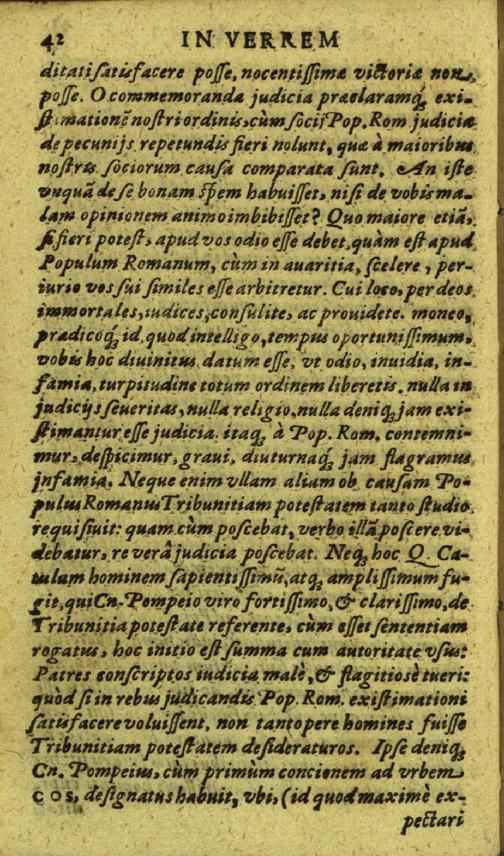 42 IN VERREM
ditati satisfacere posse, nocentissimæ victoriæ non
posse. O commemoranda judicia præclaramq́; exi-
stimationē nostri ordinis, cùm socij Pop. Rom judicia
de pecunijs repetundis fieri nolunt, quæ à maioribus
nostris sociorum causa comparata sunt. An iste
vnquā de se bonam spem habuisset, nisi de vobis ma-
lam opinionem animo imbibisset? Quo maiore etiā,
si fieri potest, apud vos odio esse debet, quàm est apud
Populum Romanum, cùm in auaritia, scelere, per-
iurio vos sui similes esse arbitretur. Cui loco, per deos
immortales, iudices, consulite, ac prouidete. moneo,
prædicoq́; id, quod intelligo, tempus oportunissimum,
vobis hoc diuinitus datum esse, vt odio, inuidia, in-
famia, turpitudine totum ordinem liberetis. nulla in
judicijs seueritas, nulla religio, nulla deniq; jam exi-
stimantur esse judicia. itaq; à Pop. Rom. contemni-
mur, despicimur, graui, diuturnaq́; jam flagramus
jnfamia. Neque enim vllam aliam ob causam Po-
pulus Romanus Tribunitiam potestatem tanto studio
requisiuit: quam cùm poscebat, verbo illā poscere vi-
debatur, re verâ judicia poscebat. Neq; hoc Q. Ca-
tulum hominem sapientissimū, atq; amplissimum fu-
git, qui Cn. Pompeio viro fortissimo, & clarissimo, de
Tribunitia potestate referente, cùm esset sententiam
rogatus, hoc initio est summa cum autoritate vsus:
Patres conscriptos iudicia malè, & flagitiosè tueri:
quòd si in rebus judicandis Pop. Rom. existimationi
satisfacere voluissent, non tantopere homines fuisse
Tribunitiam potestatem desideraturos. Ipse deniq;
Cn. Pompeius, cùm primum concionem ad vrbem
COS. designatus habuit, vbi, (id quod maximè ex-
pectari